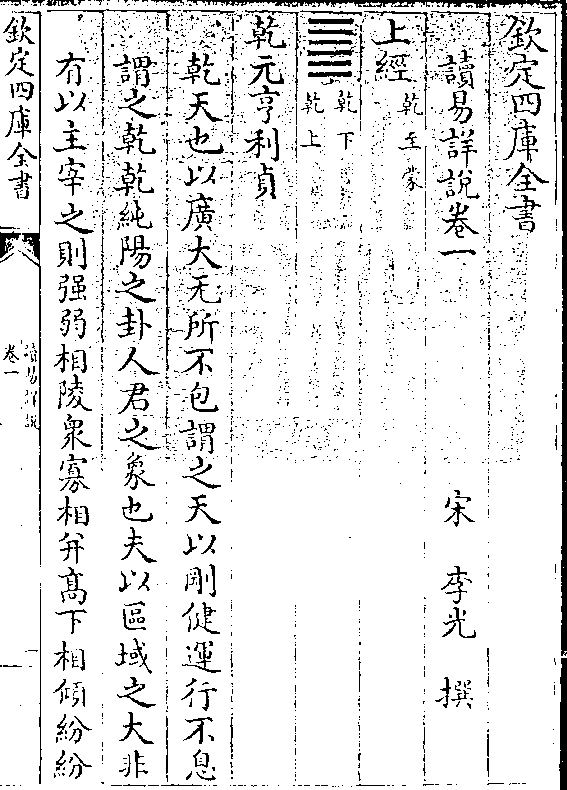 欽定四庫全書
讀易詳說卷一
宋 李光 撰
上經
乾至蒙
乾下
乾上
乾元亨利貞
乾天也以廣大无所不包謂之天以剛健運行不息
謂之乾乾純陽之卦人君之象也夫以區域之大非
有以主宰之則强弱相陵衆寡相弁髙下相傾紛紛
欽定四庫全書
讀易詳說
卷一
一